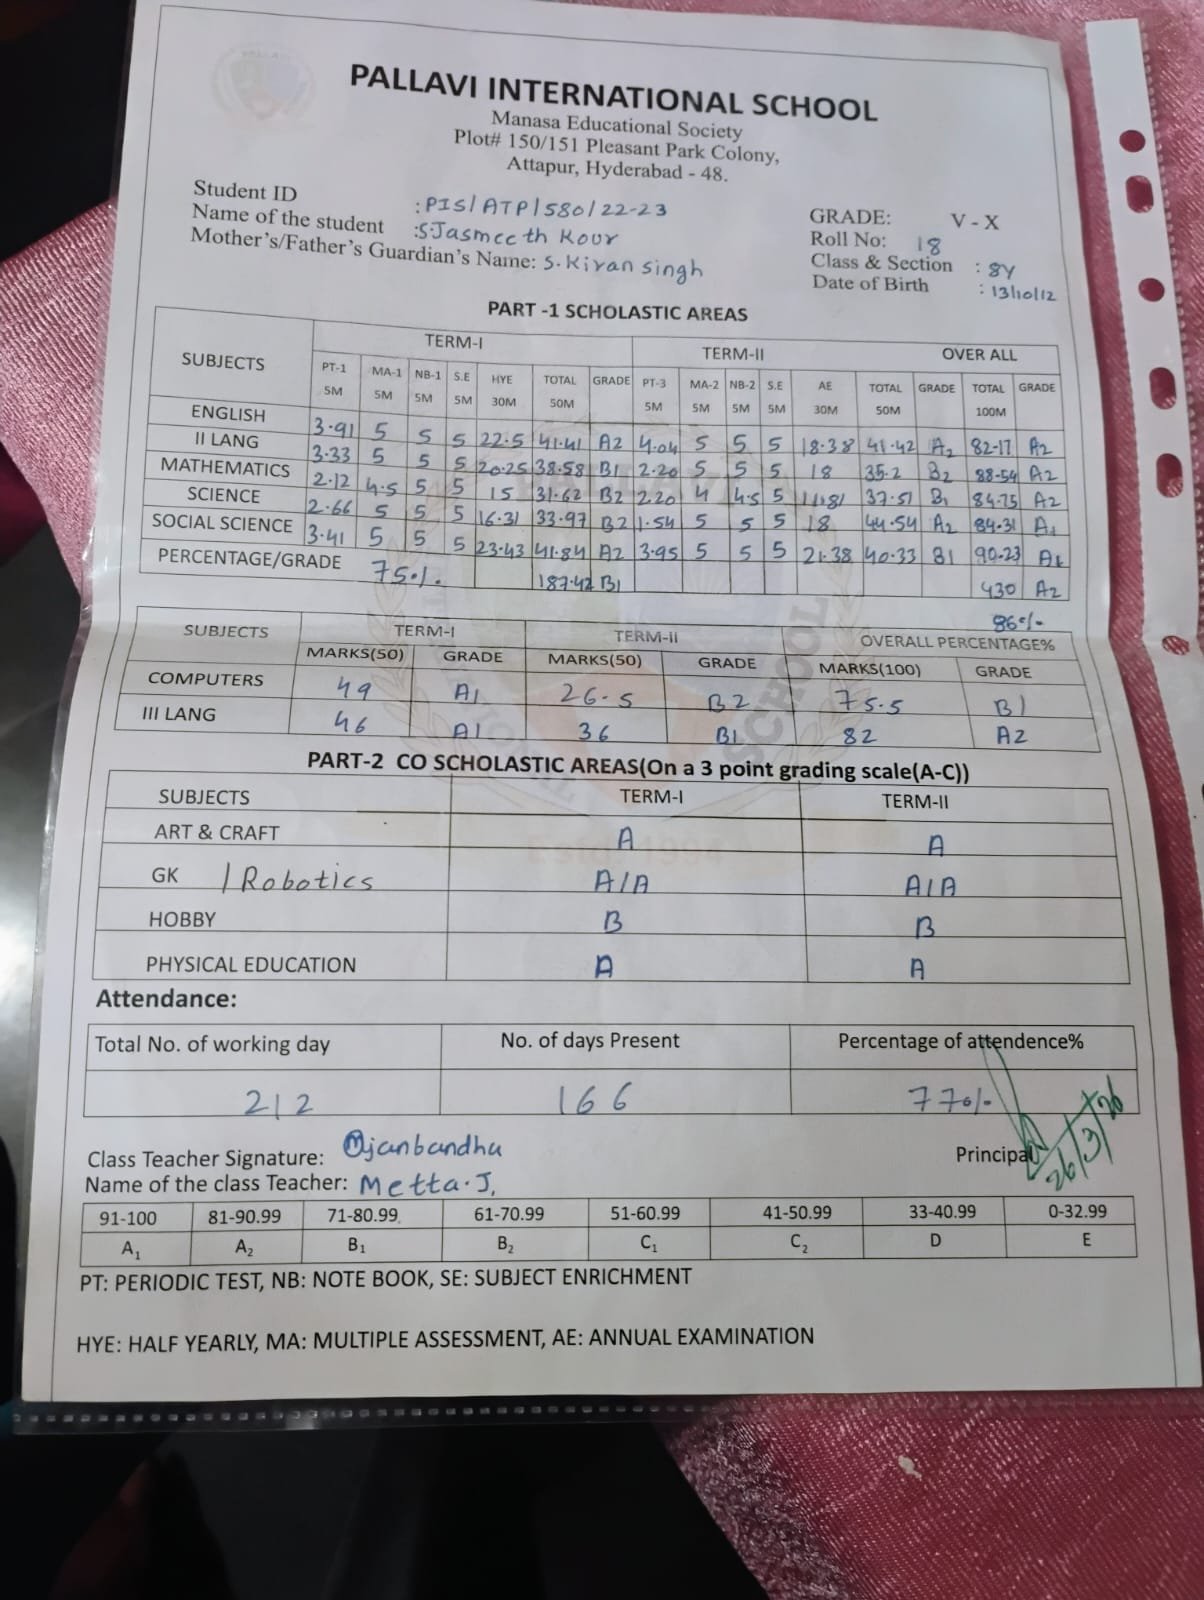 PALLAVI INTERNATIONAL SCHOOL
Manasa Educational Society
Plot# 150/151 Pleasant Park Colony,
Attapur, Hyderabad - 48.
Student ID : PIS/ATP/580/22-23
Name of the student : S.Jasmeeth Kour
Mother's/Father's Guardian's Name: S.Kiran Singh
GRADE: V - X
Roll No: 18
Class & Section : 8Y
Date of Birth : 13/10/12
PART -1 SCHOLASTIC AREAS
SUBJECTS TERM-I TERM-II OVER ALL
PT-1 MA-1 NB-1 S.E HYE TOTAL GRADE PT-3 MA-2 NB-2 S.E AE TOTAL GRADE TOTAL GRADE
5M 5M 5M 5M 30M 50M 5M 5M 5M 5M 30M 50M 100M
ENGLISH 3.91 5 5 5 22.5 41.41 A2 4.04 5 5 5 18.38 41.42 A2 82.17 A2
II LANG 3.33 5 5 5 20.25 38.58 B1 2.20 5 5 5 18 35.2 B2 88.54 A2
MATHEMATICS 2.12 4.5 5 5 15 31.62 B2 2.20 4 4.5 5 11.81 37.51 B1 84.75 A2
SCIENCE 2.66 5 5 5 16.31 33.97 B2 1.54 5 5 5 18 44.54 A2 84.31 A1
SOCIAL SCIENCE 3.41 5 5 5 23.43 41.84 A2 3.95 5 5 5 21.38 40.33 B1 90.23 A1
PERCENTAGE/GRADE 75.1. 187.42 B1 430 A2
86%
SUBJECTS TERM-I TERM-II OVERALL PERCENTAGE%
MARKS(50) GRADE MARKS(50) GRADE MARKS(100) GRADE
COMPUTERS 49 A1 26.5 B2 75.5 B1
III LANG 46 A1 36 B1 82 A2
PART-2 CO SCHOLASTIC AREAS(On a 3 point grading scale(A-C))
SUBJECTS TERM-I TERM-II
ART & CRAFT A A
GK / Robotics A/A A/A
HOBBY B B
PHYSICAL EDUCATION A A
Attendance:
Total No. of working day No. of days Present Percentage of attendence%
212 166 77%
Class Teacher Signature: Mjanbandhu
Name of the class Teacher: Metta.J.
Principal
26/3/26
91-100 81-90.99 71-80.99 61-70.99 51-60.99 41-50.99 33-40.99 0-32.99
A1 A2 B1 B2 C1 C2 D E
PT: PERIODIC TEST, NB: NOTE BOOK, SE: SUBJECT ENRICHMENT
HYE: HALF YEARLY, MA: MULTIPLE ASSESSMENT, AE: ANNUAL EXAMINATION